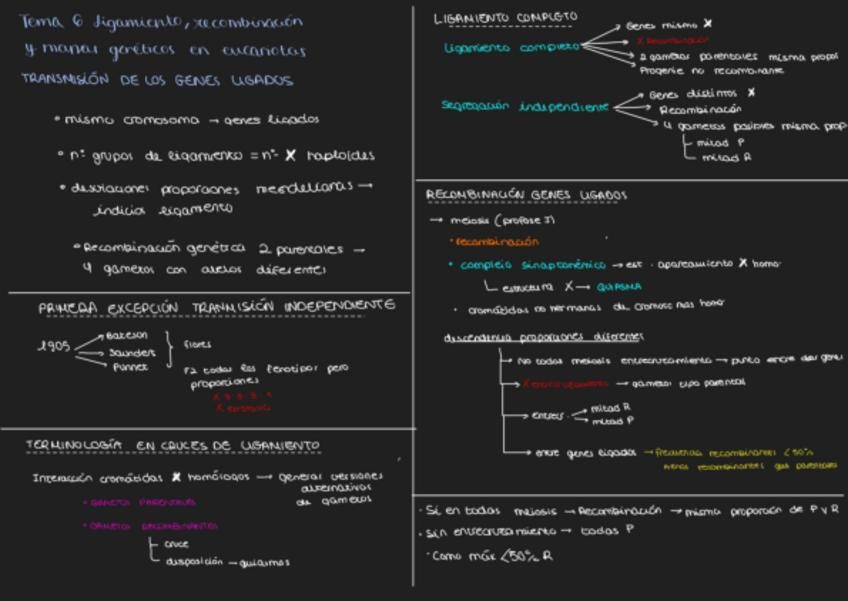 Tema 6 ligamiento, recombinación
y mapas genéticos en eucariotas
TRANSMISIÓN DE LOS GENES LIGADOS
• mismo cromosoma → genes ligados
• nº grupos de ligamiento = nº X haploides
• desviaciones proporciones mendelianas →
indicio ligamiento
• Recombinación genética 2 parentales →
4 gametos con alelos diferentes
PRIMERA EXCEPCIÓN TRANMISIÓN INDEPENDIENTE
1905
Bateson
Saunders
Punnet
flores
F2 todos los fenotipos pero
proporciones
TERMINOLOGÍA EN CRUCES DE LIGAMIENTO
Interacción cromátidas X homólogos → generar versiones
alternativas
de gametos
• GAMETOS PARENTALES
• GAMETOS RECOMBINANTES
cruce
disposición → quiasmas
LIGAMIENTO COMPLETO
Ligamiento completo
Genes mismo X
X Recombinación
2 gametos parentales misma propor
Progenie no recombinante
Segregación independiente
Genes distintos X
Recombinación
4 gametos posibles misma prop
mitad P
mitad R
RECOMBINACIÓN GENES LIGADOS
→ meiosis (profase I)
• recombinación
• complejo sinaptonémico → est. apareamiento X homo
estructura X → QUIASMA
• cromátidas no hermanas de cromosomas homo
descendencia proporciones diferentes
No todas meiosis entrecruzamiento → punto entre dos genes
X entrecruzamiento → gametos tipo parental
entrecr.
mitad R
mitad P
entre genes ligados → frecuencia recombinantes <50%
menos recombinantes que parentales
• Si en todas meiosis → Recombinación → misma proporción de P y R
• Sin entrecruzamiento → todas P
• Como máx <50% R